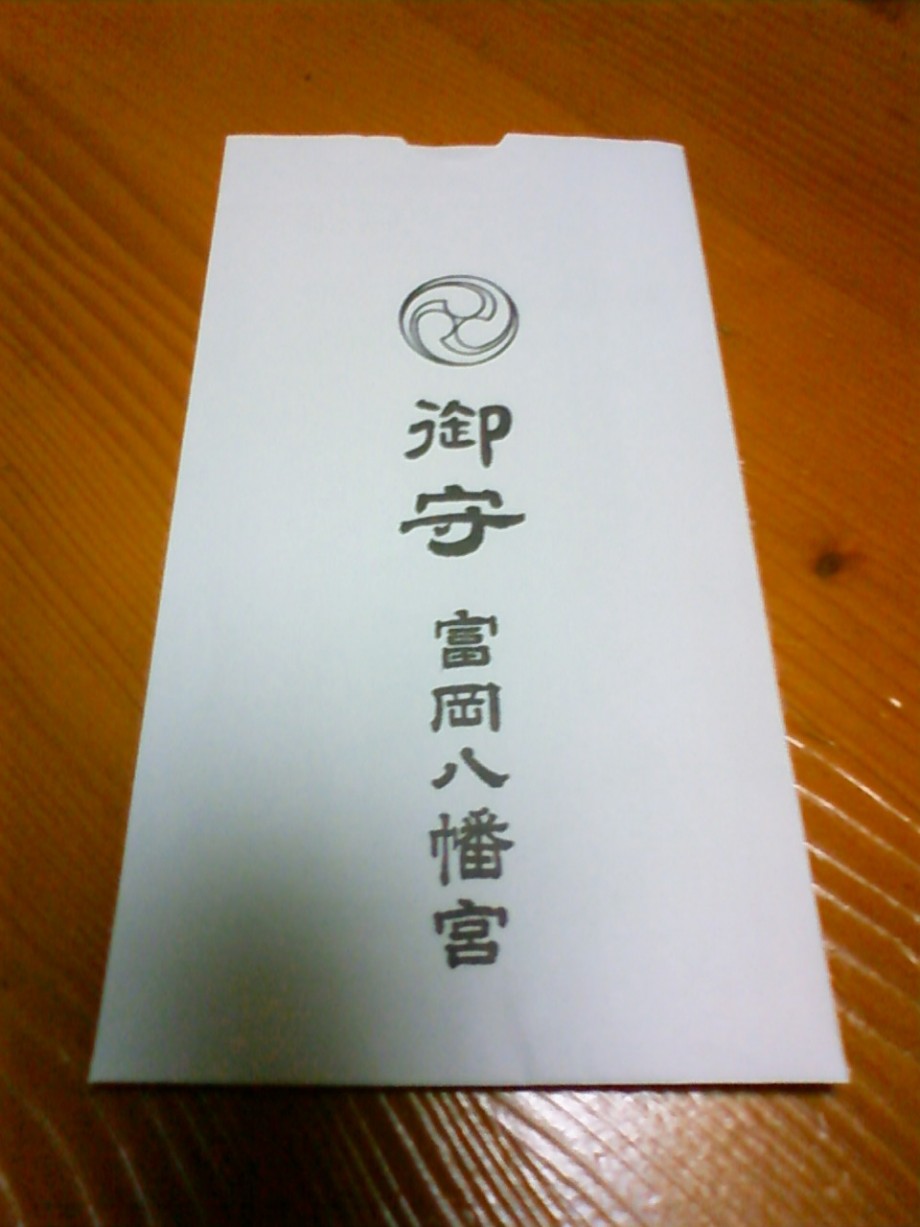 御守
富岡八幡宮